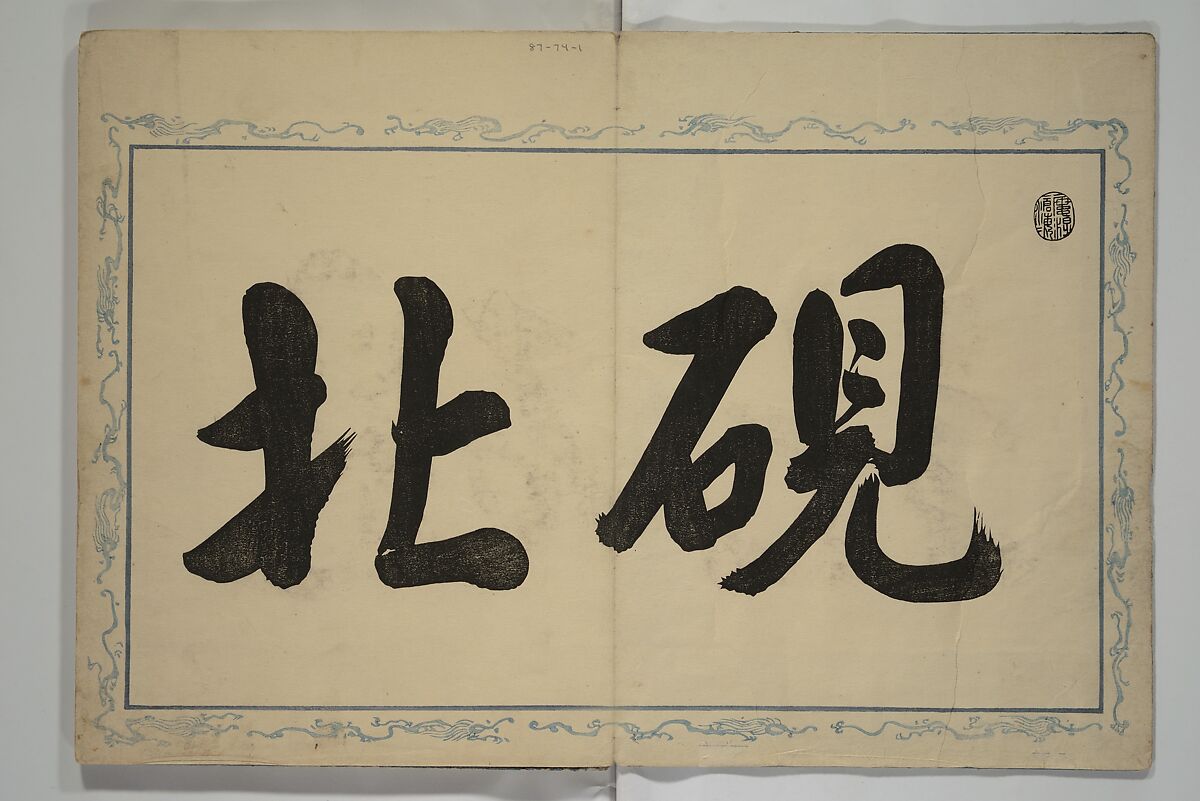 87-74-1
硯北